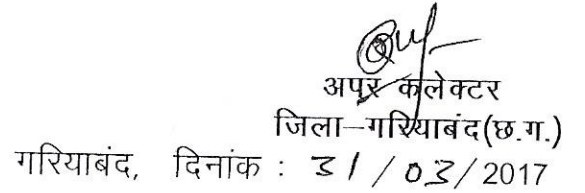 अपर कलेक्टर
जिला–गरियाबंद(छ.ग.)
गरियाबंद, दिनांक : 31 / 03 / 2017